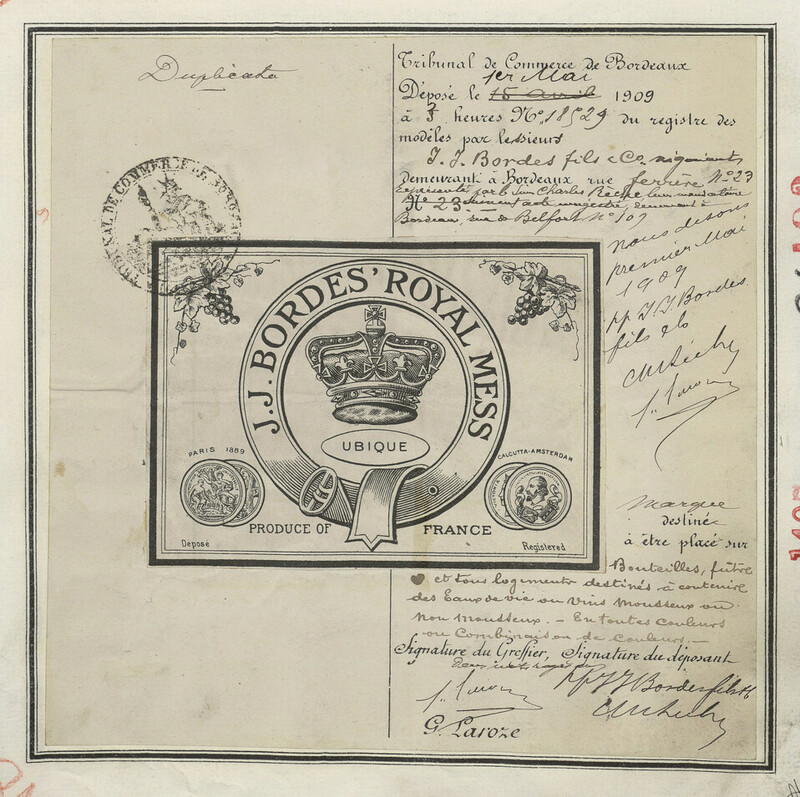 Duplicata
Tribunal de Commerce de Bordeaux
1er Mai
Déposé le 15 avril 1909
à 3 heures No. 18529 du registre des
modèles par les sieurs
J. J. Bordes fils & Co. négociants
demeurant à Bordeaux rue ferrère No 23
représenté par le sieur Charles leur mandataire
No 23
Bordeaux, rue de Belfort No 107
nous disons
premier Mai
1909
pp J. J. Bordes
fils & Co
TRIBUNAL DE COMMERCE DE BORDEAUX
J.J. BORDES' ROYAL MESS
UBIQUE
PARIS 1889
CALCUTTA-AMSTERDAM
PRODUCE OF FRANCE
Déposé
Registered
marque
destinée
à être placé sur
Bouteilles, futs
et tous logements destinés à contenir
des Eaux de vie ou Vins Mousseux ou
Non Mousseux. — En toutes couleurs
ou Combinaison de couleurs. —
Signature du Greffier, Signature du déposant
pp J J Bordes fils & Co
G. Laroze